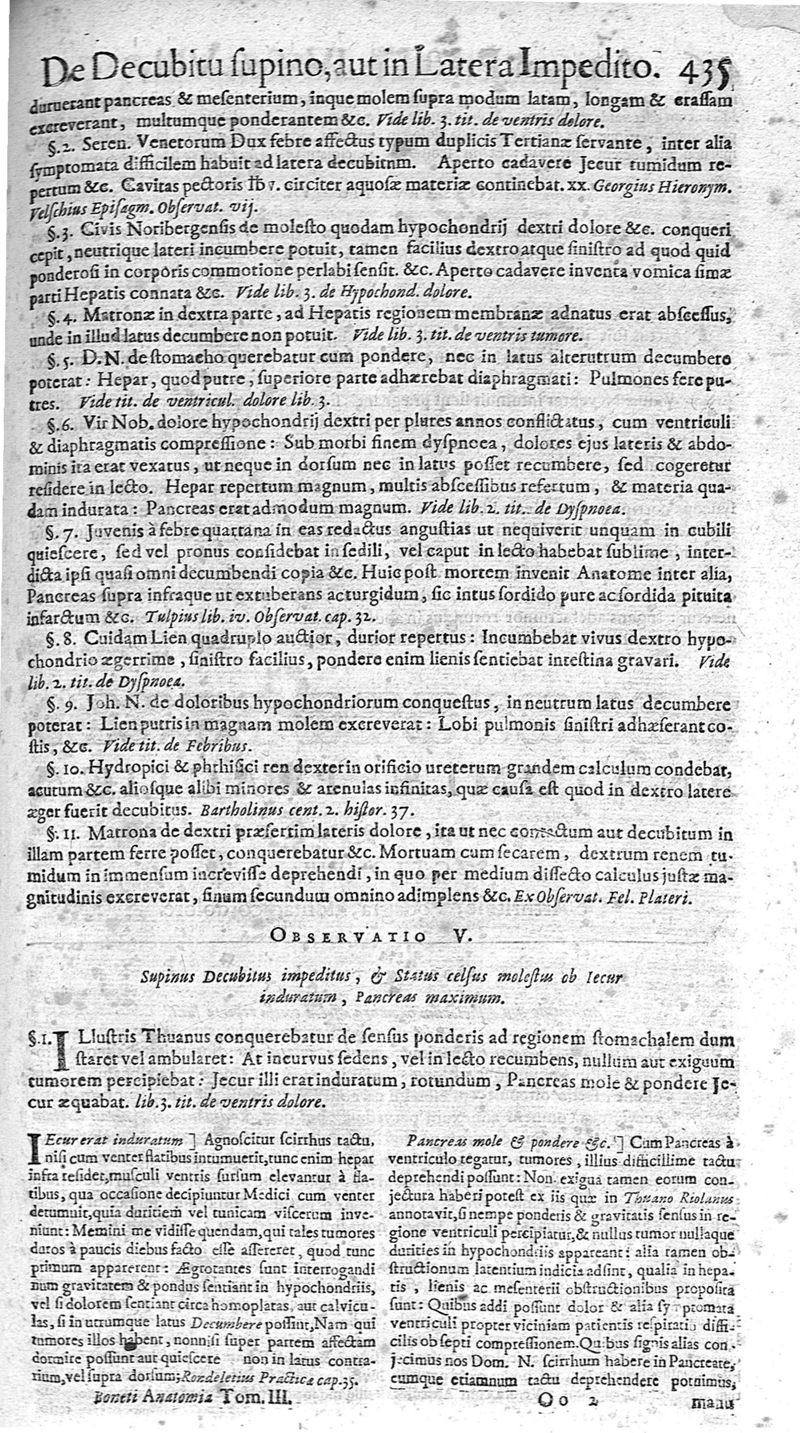 De Decubitu ſupino, aut in Latera Impedito. 435
duruerant pancreas & meſenterium, inque molem ſupra modum latam, longam & craſſam
excreverant, multumque ponderantem &c. Vide lib. 3. tit. de ventris dolore.
§.2. Seren. Venetorum Dux febre affectus typum duplicis Tertianæ ſervante, inter alia
ſymptomata difficilem habuit ad latera decubitnm. Aperto cadavere Jecur tumidum re-
pertum &c. Cavitas pectoris ℔v. circiter aquoſæ materiæ continebat. xx. Georgius Hieronym.
Velſchius Epiſagm. Obſervat. vij.
§.3. Civis Noribergenſis de moleſto quodam hypochondrij dextri dolore &c. conqueri
cepit, neutrique lateri incumbere potuit, tamen facilius dextro atque ſiniſtro ad quod quid
ponderoſi in corporis commotione perlabi ſenſit. &c. Aperto cadavere inventa vomica ſimæ
parti Hepatis connata &c. Vide lib. 3. de Hypochond. dolore.
§.4. Matronæ in dextra parte, ad Hepatis regionem membranæ adnatus erat abſceſſus,
unde in illud latus decumbere non potuit. Vide lib. 3. tit. de ventris tumore.
§.5. D.N. de ſtomacho querebatur cum pondere, nec in latus alterutrum decumbere
poterat: Hepar, quod putre, ſuperiore parte adhærebat diaphragmati: Pulmones fere pu-
tres. Vide tit. de ventricul. dolore lib. 3.
§.6. Vir Nob. dolore hypochondrij dextri per plures annos conflictatus, cum ventriculi
& diaphragmatis compreſſione: Sub morbi finem dyſpnœa, dolores ejus lateris & abdo-
minis ita erat vexatus, ut neque in dorſum nec in latus poſſet recumbere, ſed cogeretur
reſidere in lecto. Hepar repertum magnum, multis abſceſſibus refertum, & materia qua-
dam indurata: Pancreas erat admodum magnum. Vide lib. 2. tit. de Dyſpnoea.
§.7. Juvenis à febre quartana in eas redactus anguſtias ut nequiverit unquam in cubili
quieſcere, ſed vel pronus conſidebat in ſedili, vel caput in lecto habebat ſublime, inter-
dicta ipſi quaſi omni decumbendi copia &c. Huic poſt mortem invenit Anatome inter alia,
Pancreas ſupra infraque ut extuberans ac turgidum, ſic intus ſordido pure ac ſordida pituita
infarctum &c. Tulpius lib. iv. Obſervat. cap. 32.
§.8. Cuidam Lien quadruplo auctior, durior repertus: Incumbebat vivus dextro hypo-
chondrio ægerrime, ſiniſtro facilius, pondere enim lienis ſentiebat inteſtina gravari. Vide
lib. 2. tit. de Dyſpnœa.
§.9. Joh. N. de doloribus hypochondriorum conqueſtus, in neutrum latus decumbere
poterat: Lien putris in magnam molem excreverat: Lobi pulmonis ſiniſtri adhæſerant co-
ſtis, &c. Vide tit. de Febribus.
§.10. Hydropici & phthiſici ren dexter in orificio ureterum grandem calculum condebat,
acutum &c. alioſque alibi minores & arenulas infinitas, quæ cauſa eſt quod in dextro latere
æger fuerit decubitus. Bartholinus cent. 2. hiſtor. 37.
§.11. Matrona de dextri præſertim lateris dolore, ita ut nec contactum aut decubitum in
illam partem ferre poſſet, conquerebatur &c. Mortuam cum ſecarem, dextrum renem tu-
midum in immenſum increviſſe deprehendi, in quo per medium diſſecto calculus juſtæ ma-
gnitudinis excreverat, ſinum ſecundum omnino adimplens &c. Ex Obſervat. Fel. Plateri.
OBSERVATIO V.
Supinus Decubitus impeditus, & Status celſus moleſtus ob Iecur
induratum, Pancreas maximum.
§.1. ILluſtris Thuanus conquerebatur de ſenſus ponderis ad regionem ſtomachalem dum
ſtaret vel ambularet: At incurvus ſedens, vel in lecto recumbens, nullum aut exiguum
tumorem percipiebat: Jecur illi erat induratum, rotundum, Pancreas mole & pondere Je-
cur æquabat. lib. 3. tit. de ventris dolore.
IEcur erat induratum ] Agnoſcitur ſcirrhus tactu,
niſi cum venter flatibus intumuerit, tunc enim hepar
infra reſidet, muſculi ventris ſurſum elevantur à fla-
tibus, qua occaſione decipiuntur Medici cum venter
detumuit, quia duritiem vel tunicam viſcerum inve-
niunt: Memini me vidiſſe quendam, qui tales tumores
duros à paucis diebus facto eſſe aſſereret, quod tunc
primum apparerent: Ægrotantes ſunt interrogandi
num gravitatem & pondus ſentiant in hypochondriis,
vel ſi dolorem ſentiant circa homoplatas, aut calvicu-
las, ſi in utrumque latus Decumbere poſſint, Nam qui
tumores illos habent, nonniſi ſuper partem affectam
dormire poſſunt aut quieſcere non in latus contra-
rium, vel ſupra dorſum; Rondeletius Practica cap. 35.
Boneti Anatomia Tom. III.
Pancreas mole & pondere &c. ] Cum Pancreas à
ventriculo tegatur, tumores, illius difficillime tactu
deprehendi poſſunt: Non exigua tamen eorum con-
jectura haberi poteſt ex iis quæ in Thuano Riolanus
annotavit, ſi nempe ponderis & gravitatis ſenſus in re-
gione ventriculi percipiatur, & nullus tumor nullaque
durities in hypochondriis appareant: alia tamen ob-
ſtructionum latentium indicia adſint, qualia in hepa-
tis, lienis ac meſenterii obſtructionibus propoſita
ſunt: Quibus addi poſſunt dolor & alia ſymptomata
ventriculi propter viciniam patientis reſpiratio diffi-
cilis ob ſepti compreſſionem. Quibus ſignis alias con-
jecimus nos Dom. N. ſcirrhum habere in Pancreate,
eumque etiamnum tactu deprehendere potuimus,
Oo 2 manu